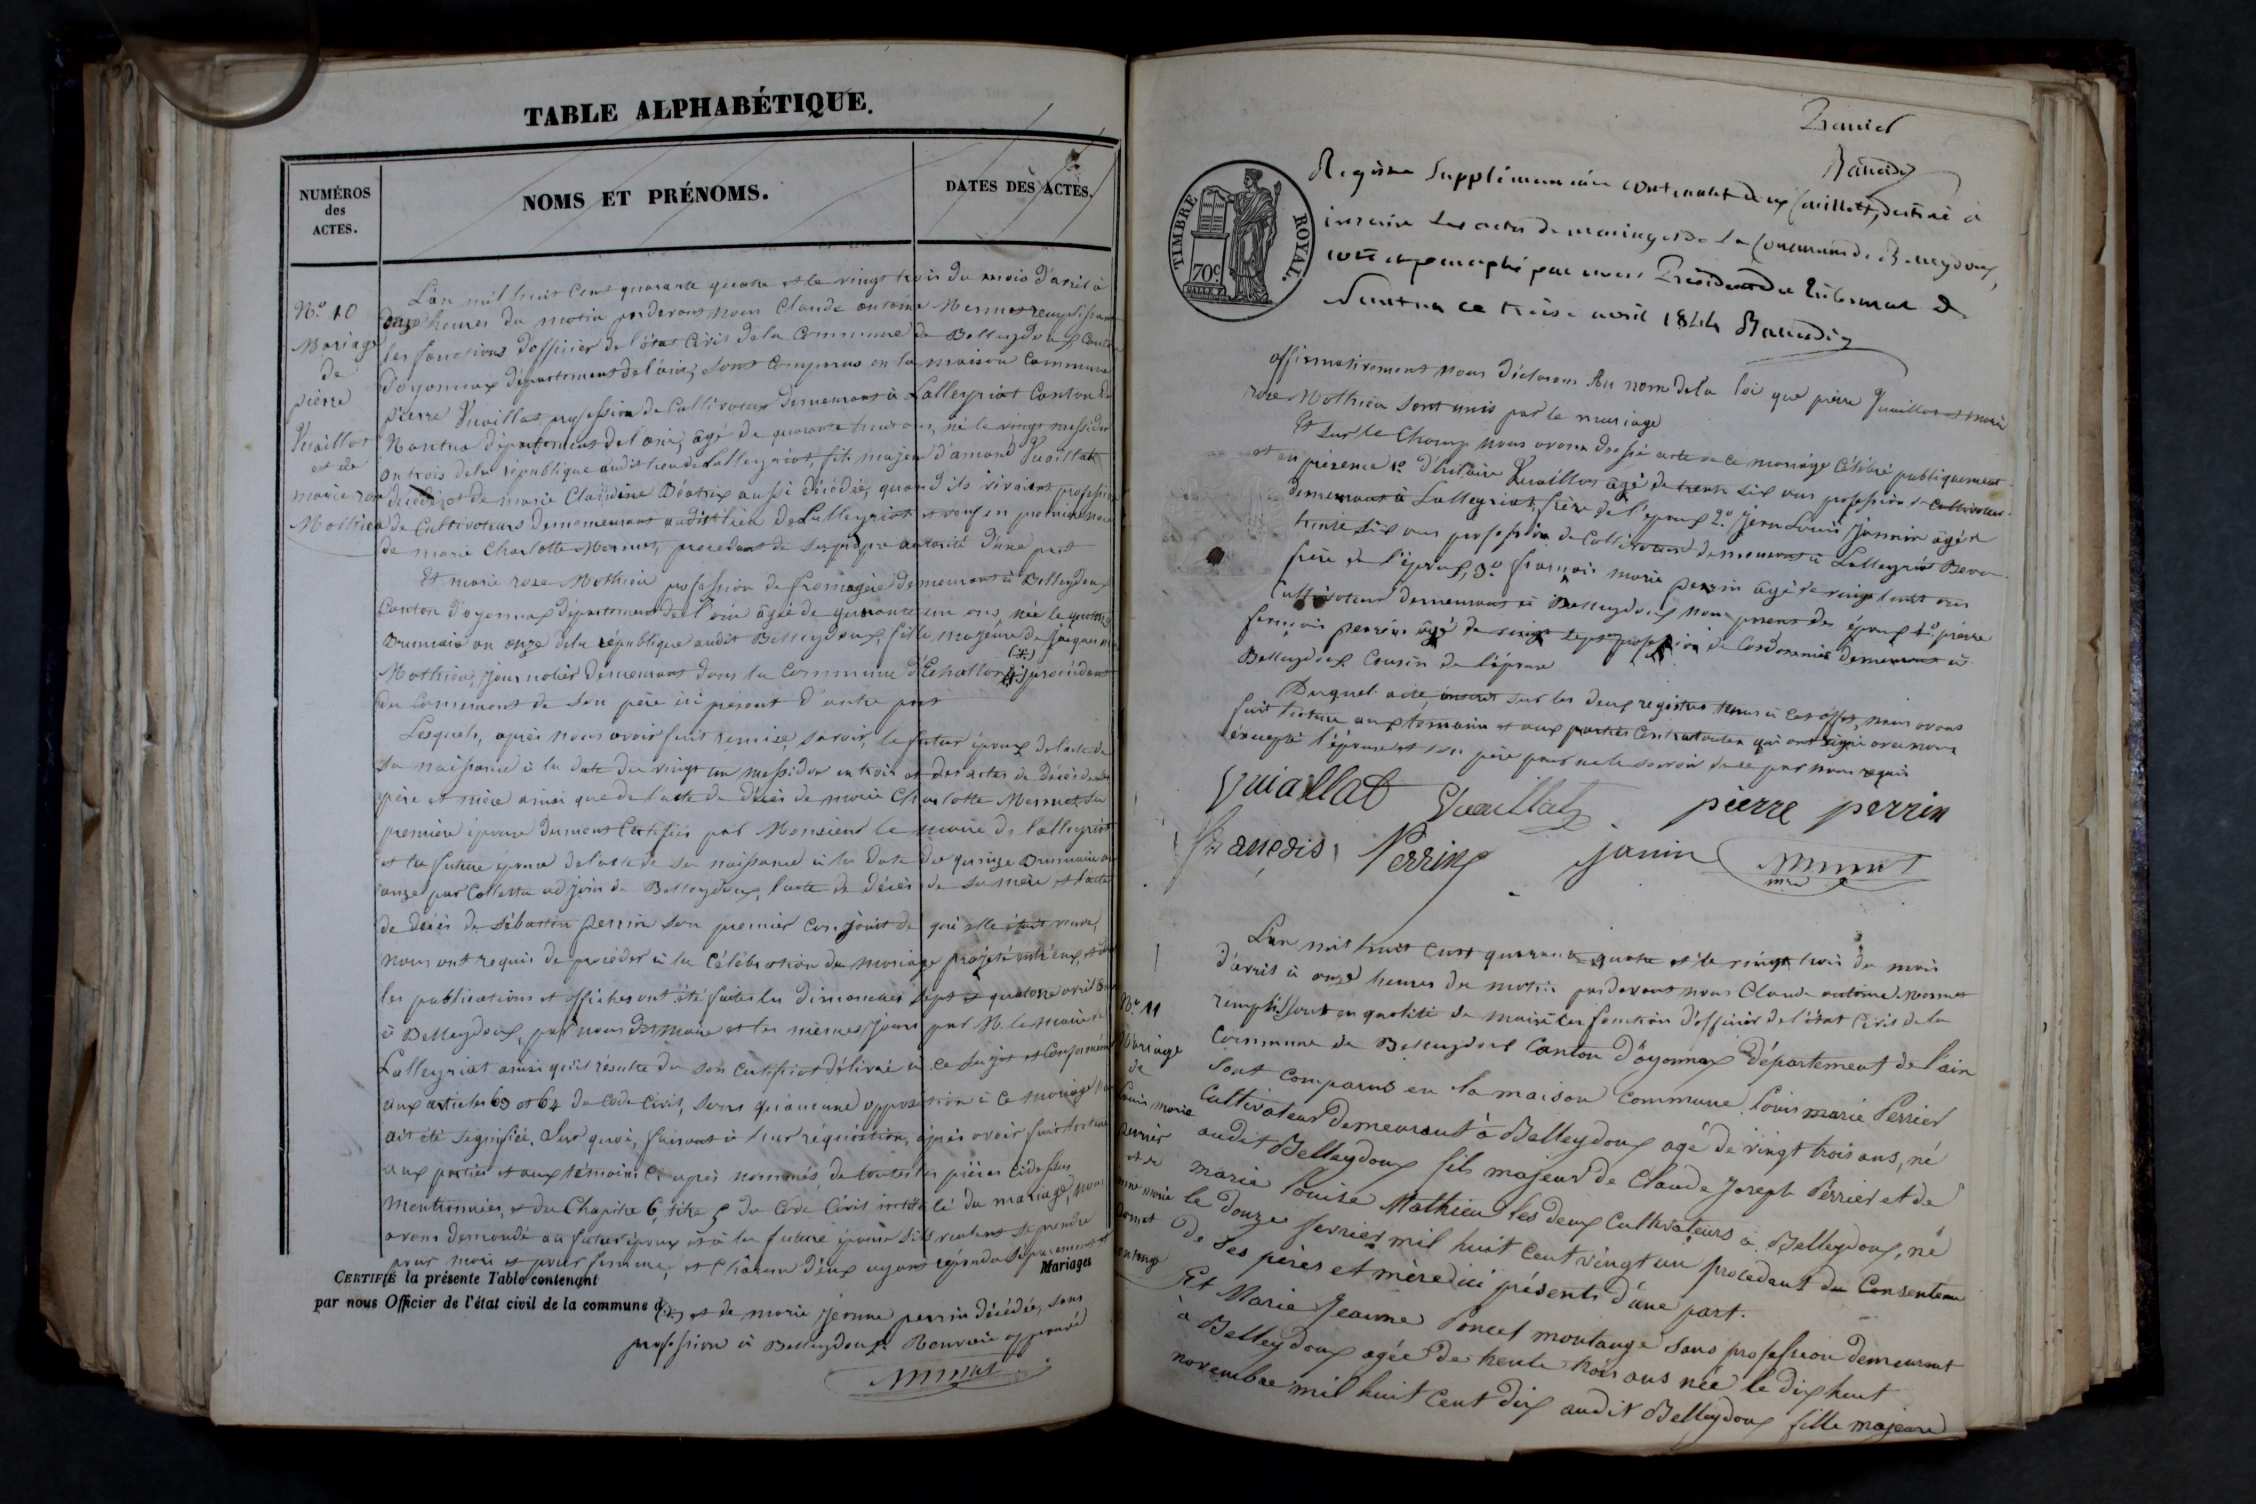 TABLE ALPHABÉTIQUE.
NUMÉROS
des
ACTES.
NOMS ET PRÉNOMS.
DATES DES ACTES.
N.o 10
Mariage
de
pierre
Vuaillat
et de
marie rose
Mathieu
L'an mil huit cent quarante quatre et le vingt trois du mois d'avril à
onze heures du matin pardevant nous Claude antoine Mermet remplissant
les fonctions d'officier de l'état civil de la Commune de Belleydoux Canton
d'oyonnax département de l'ain, sont comparus en la maison Commune
Pierre Vuaillat profession de Cultivateur demeurant à Lalleyriat Canton de
Nantua département de l'ain, âgé de quarante huit ans, né le vingt messidor
an trois de la république audit lieu de Lalleyriat, fils majeur d'amand Vuaillat
décédé, et de marie Claudine Béatrix aussi décédée, quand ils vivaient profession
de Cultivateurs demeurant audit lieu de Lalleyriat et veuf en première noce
de marie Charlotte Mermet, procédant de sa propre autorité d'une part
Et marie rose Mathieu profession de fromagère demeurant à Belleydoux
Canton d'oyonnax département de l'ain âgée de quarante un ans, née le quinze
Brumaire an onze de la république audit Belleydoux, fille majeure de jacques
Mathieu, journalier demeurant dans la Commune d'Echallon (+) procédant
du Consement de son père ici présent d'autre part
Lesquels, après nous avoir fait remise, savoir, le futur époux de l'acte de
sa naissance à la date du vingt un messidor an trois et des actes de décès de ses
père et mère ainsi que de l'acte de décès de marie Charlotte Mermet, sa
première épouse dument Certifiés par Monsieur le maire de lalleyriat
et la future épouse de l'acte de sa naissance à la date du quinze Brumaire an
onze par Colletta adjoint de Belleydoux, l'acte de décès de sa mère et l'acte
de décès de sébastien perrin son premier Conjoint de qui elle était veuve,
nous ont requis de procéder à la Célébration du mariage projeté entr'eux, et dont
les publications et affiches ont été faites les dimanches sept et quatorze avril
à Belleydoux, par nous dit maire et les mêmes jours par M. le maire de
Lalleyriat ainsi qu'il résulte de son certificat délivré à ce sujet et Conformément
aux articles 63 et 64 du Code Civil, sans qu'aucune opposition à ce mariage nous
ait été signifiée. Sur quoi, faisant à leur réquisition, après avoir fait lecture
aux parties et aux témoins ci après nommés, de toutes les pièces ci dessus
mentionnées, et du Chapitre 6, titre 5 du Code Civil intitulé du mariage, nous
avons demandé au futur époux et à la future épouse s'ils veulent se prendre
pour mari et pour femme, et Chacun d'eux ayant répondu séparement et
CERTIFIÉ la présente Table contenant
Mariages
par nous Officier de l'état civil de la commune d
(+) et de marie jeanne perrin décédée, sans
profession à Belleydoux Renvoi approuvé
Mermet
Baudin
Registre Supplémentaire contenant deux feuillets, destiné à
inscrire les actes de mariages de la Commune de Belleydoux,
coté et paraphé par nous Président du Tribunal de
Nantua ce treize avril 1844 Baudin
TIMBRE ROYAL.
70c
affirmativement nous déclarons Au nom de la loi que pierre Vuaillat et marie
rose Mathieu sont unis par le mariage
Et sur le Champ nous avons dressé acte de ce mariage Célébré publiquement
et en présence 1.o d'hilaire Vuaillat âgé de trente six ans profession de Cultivateur
demeurant à Lalleyriat, frère de l'époux 2.o jean Louis jannin âgé de
trente six ans profession de Cultivateur demeurant à Lalleyriat Beau
frère de l'époux, 3.o françois marie perrin âgé de vingt huit ans
Cultivateur demeurant à Belleydoux non parent des époux 4.o pierre
françois perrin âgé de vingt sept profession de Cordonnier demeurant à
Belleydoux Cousin de l'épouse
Duquel acte, inscrit sur les deux registres tenus à cet effet, nous avons
fait lecture aux témoins et aux parties Contractantes qui ont signé avec nous
excepté l'épouse et son père pour ne le savoir faire par nous requis
Vuaillat Vuaillat pierre perrin
françois Perrin janin Mermet
mre
N.o 11
Mariage
de
Louis marie
perrier
et de
marie
poncet
montange
L'an mil huit cent quarante quatre et le vingt trois du mois
d'avril à onze heures du matin pardevant nous Claude antoine Mermet
remplissant en qualité de maire les fonction d'officier de l'état Civil de la
Commune de Belleydoux Canton d'oyonnax département de l'ain
sont comparus en la maison commune Louis marie Perrier
Cultivateur demeurant à Belleydoux agé de vingt trois ans, né
audit Belleydoux fils majeur de Claude Joseph Perrier et de
marie louise Mathieu les deux Cultivateurs à Belleydoux, né
le douze fevrier mil huit cent vingt un procedant du Consenteme
de ses pères et mère ici présents d'une part.
Et Marie Jeanne Poncet montange sans profession demeurant
à Belleydoux agée de trente trois ans née le dix huit
novembre mil huit Cent dix audit Belleydoux fille majeure